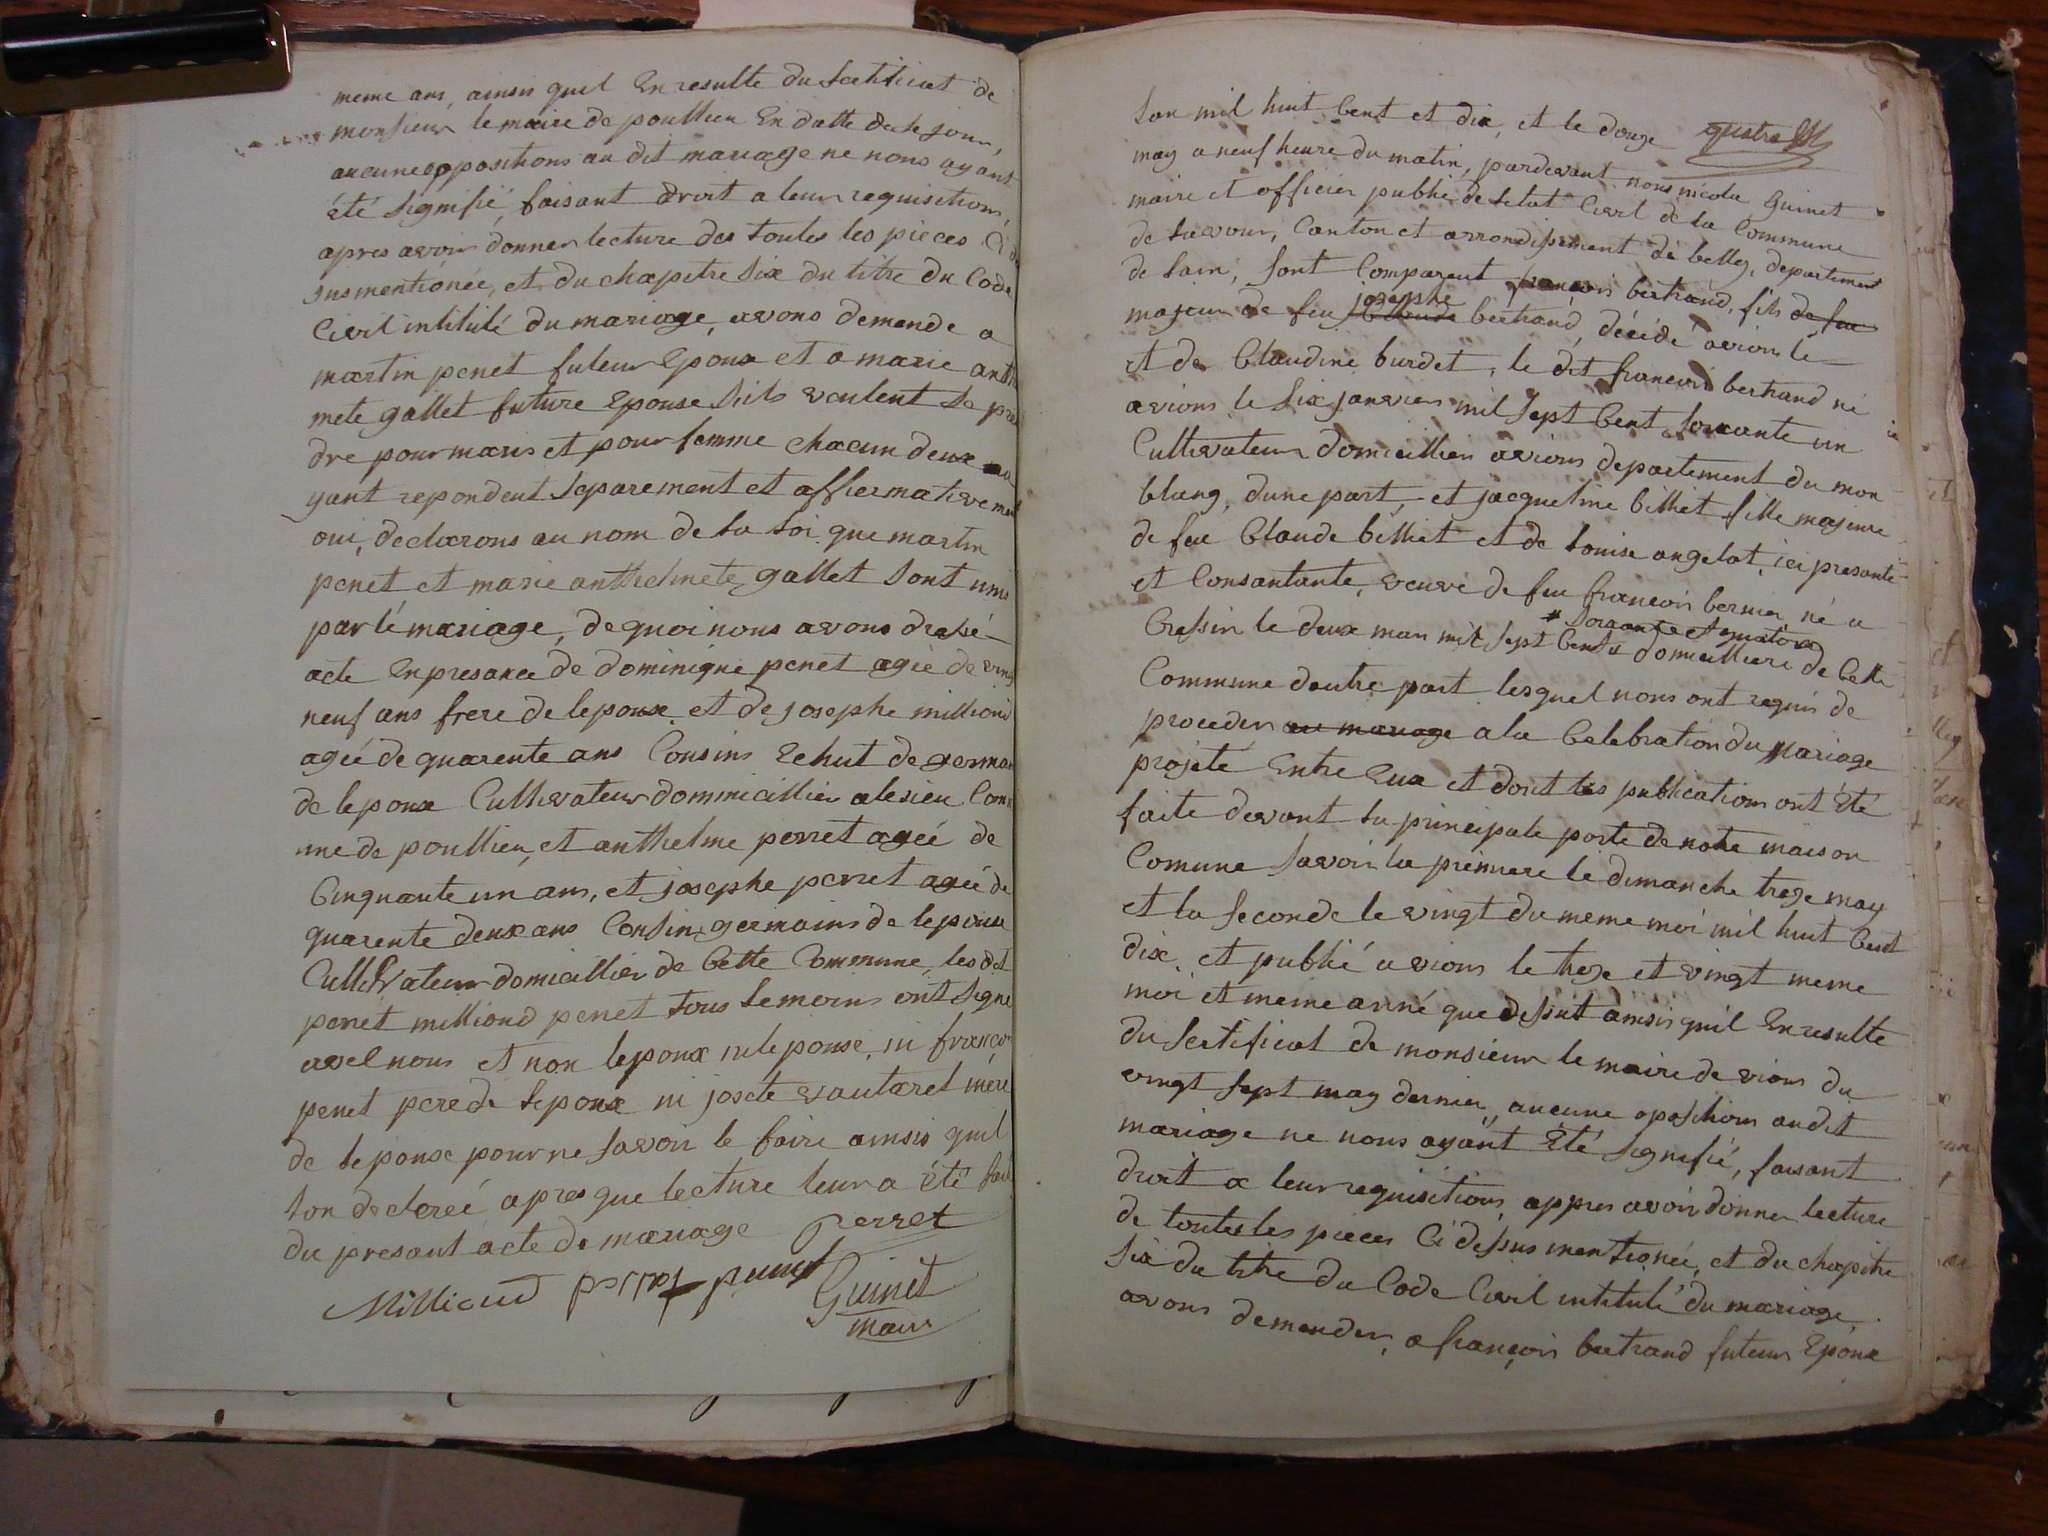 meme ans, ainsis quil En resulte du Sertificat de
monsieur le maire de poullieu En datte de le jour,
aucune oppositions au dit mariage ne nous ayant
été Signifié, faisant droit a leur requisitions,
apres avoir donner lecture des toutes les pieces Ci de
susmentionée, et du chapitre Six du titre du Code
Civil intitulé du mariage, avons demende a
martin penet futeur Epoux et a marie anth
mete gallet future Epouse Sils veulent Se pre
dre pour maris et pour femme chacun deux
yant repondent Separement et affiermativement
oui, declarons au nom de la Loi que martin
penet et marie anthelmete gallet Sont unis
par lé mariage, de quoi nous avons dressé
acte En presance de dominique penet agée de vingt
neuf ans frere de lepoux et de josephe milliond
agée de quarente ans Cousins de
de lepoux Cultivateur dommicillier a Com
une de poullieu, et anthelme perret agée de
Cinquante un ans, et josephe perret agée de
quarente deux ans Cousins germains de lepouse
Cultivateur domicillier de Cette Commune, les dit
perret milliond penet tous temoins ont Signe
avel nous et non lepoux ni lepouse, ni françois
penet pere de lepoux ni josete vautaret mere
de lepouse pour ne Savoir le faire ainsis quil
lon decleréé apres que lecture leur a été fait
du presant acte de mariage Perret
Milliand perret penet Guinet
maire
Lan mil huit Cent et dix, et le douze
may a neuf heure du matin, pardevant nous nicola Guinet
maire et officier public de letat Civil de la Commune
de Lavour, Canton et arrondissement de belley, departement
de Lain, Sont Comparent françois bertrand, fils de feu
josephe
majeur de feu Claude bertrand, décidé a vions le
et de Claudine burdet, le dit françois bertrand né
a vions le Six janvier mil Sept Cent Soixante un
Cultivateur domicillier a vions departement du mon
blang, dune part, et jacqueline billiet fille majeure
de feu Claude billiet et de Louise angelot, ici presante
et Consantante, veuve de feu françois bernier né a
# Soixante et quatorze
Cressin le deux mars mil Sept Cents # domicilliere de Cette
Commune dautre part lesquel nous ont requis de
proceder au mariage a la Celebration du Mariage
projeté Entre Eux et dont les publications ont été
faite devant la principale porte de notre maison
Comune Savoir la premiere le dimanche treze may
et la Seconde le vingt du meme moi mil huit Cent
dix, et publié a vions le treze et vingt meme
moi et meme anné que dessut ainsis quil En resulte
du Sertificat de monsieur le maire de vions du
vingt Sept may dernier, aucune opositions audit
mariage ne nous ayant Eté Signifié, faisant
droit a leur requisitions, appres avoir donner lecture
de toutes les pieces Ci dessus mentionée, et du chapitre
Six du titre du Code Civil intitulé du mariage
avons demender, a françois bertrand futeur Epoux